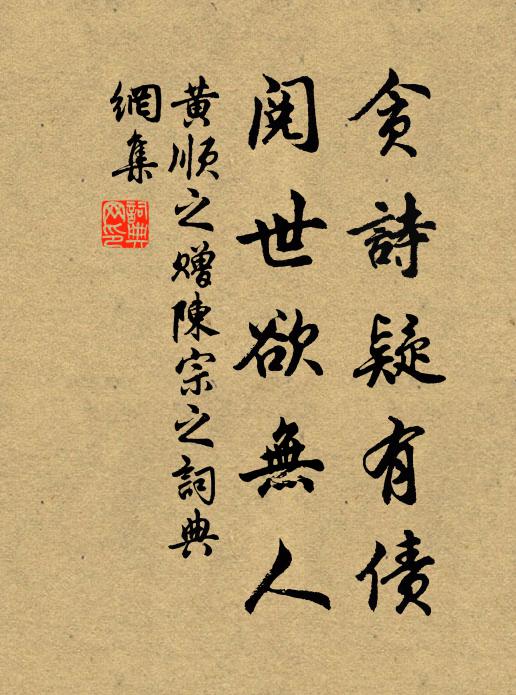 貪詩疑有債
閱世欲無人
黃順之贈陳宗之詞典
網集
詞典
网印